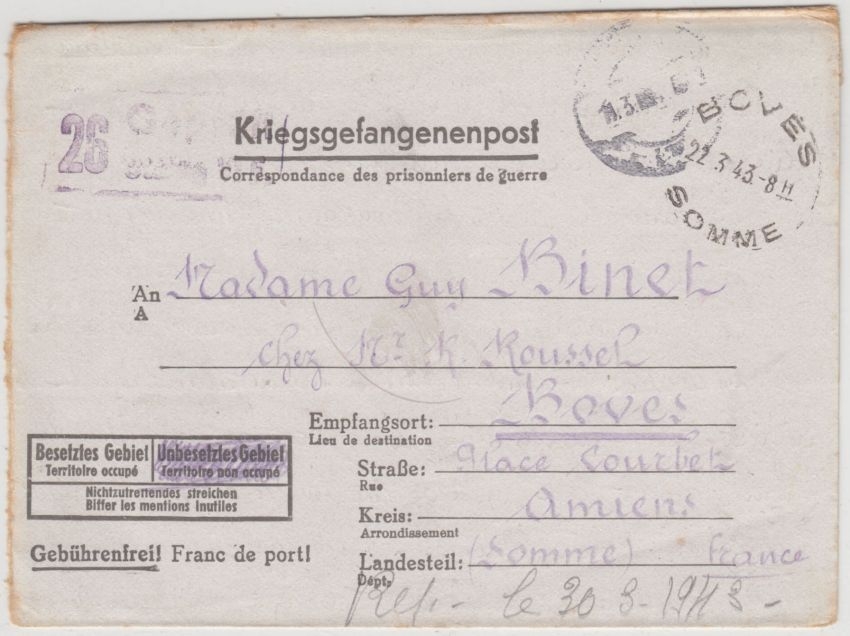 26 Geprüft
Kriegsgefangenenpost
Correspondance des prisonniers de guerre
BOVES
22.3.43.-8H
SOMME
An Madame Guy Binet
A
chez Mr. R. Roussel
Empfangsort: Boves
Lieu de destination
Besetztes Gebiet Unbesetztes Gebiet
Territoire occupé Territoire non occupé
Nichtzutreffendes streichen
Biffer les mentions inutiles
Straße: Place Courbet
Rue
Kreis: Amiens
Arrondissement
Gebührenfrei! Franc de port!
Landesteil: (Somme) France
Dépt.
Rep. - le 30-3-1943-